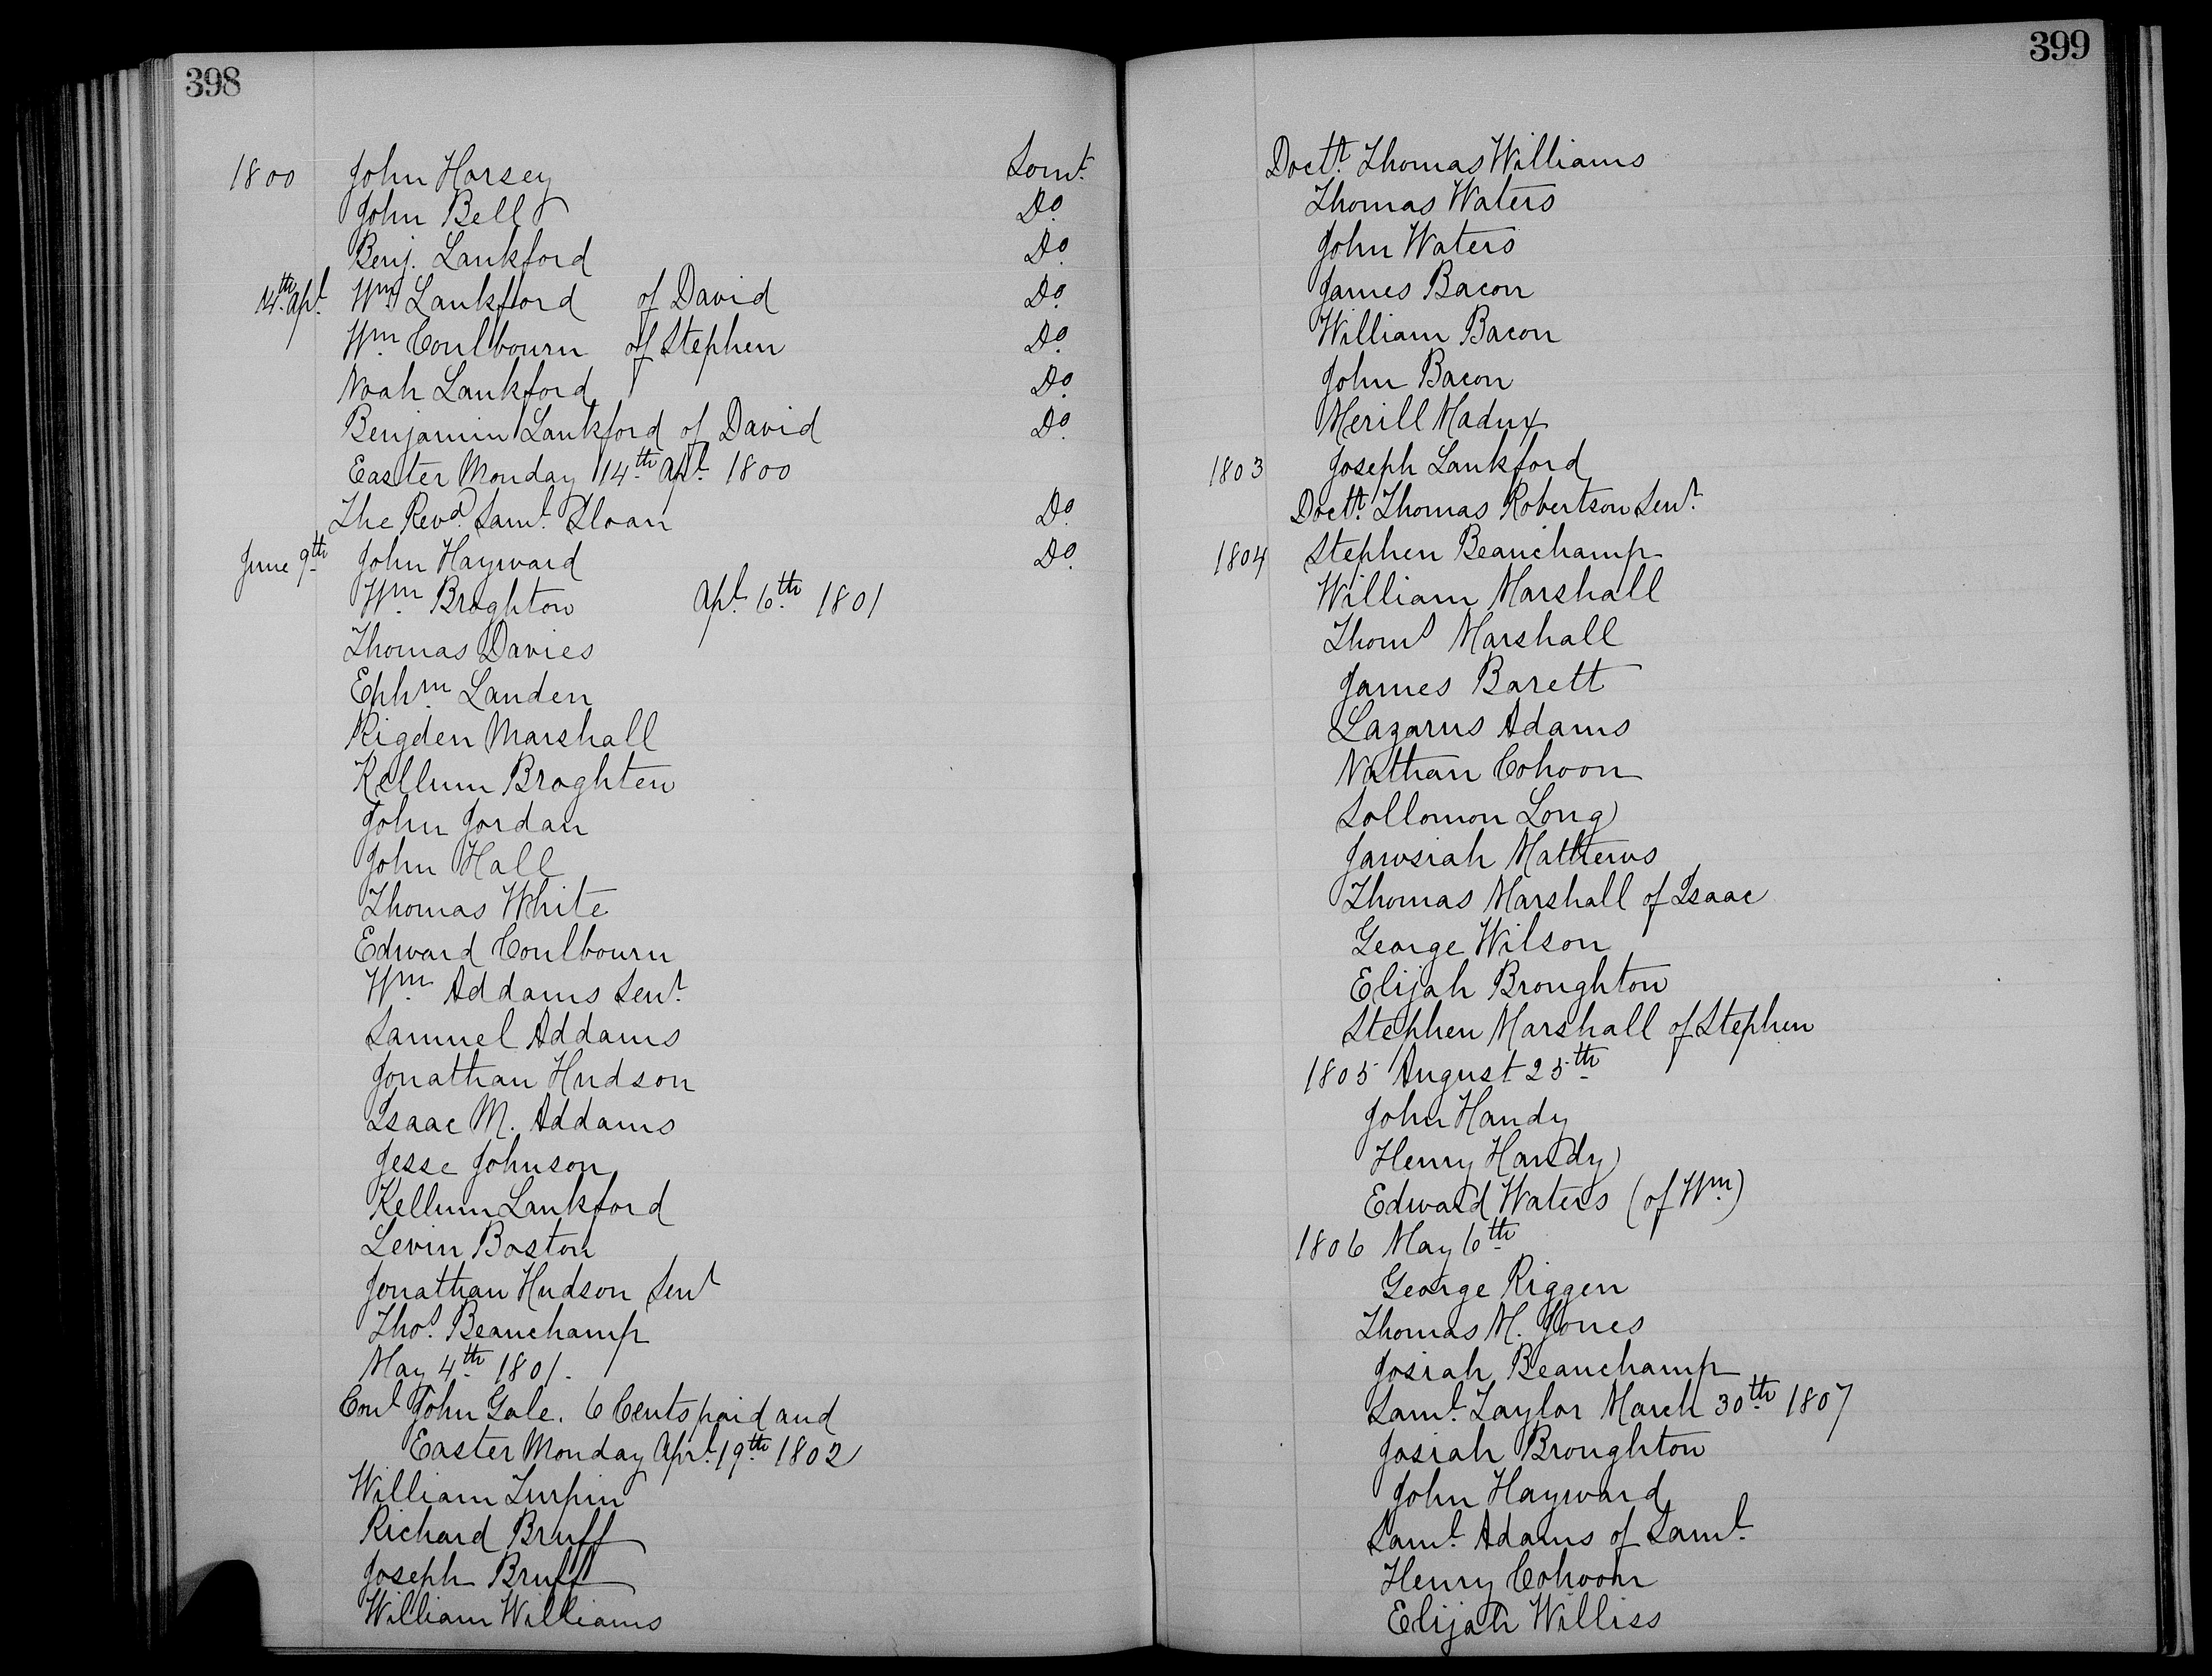 398
1800 John Horsey Somt.
John Bell Do.
Benj. Lankford Do.
14th. Apl. Wm. Lankford of David Do.
Wm. Coulbourn of Stephen Do.
Noah Lankford Do.
Benjamin Lankford of David Do.
Easter Monday 14th. Apl. 1800
The Revd. Saml. Sloan Do.
June 9th. John Hayward Do.
Wm. Broghton Apl. 6th. 1801
Thomas Davies
Ephm. Landen
Rigden Marshall
Kellum Broghten
John Jordan
John Hall
Thomas White
Edward Coulbourn
Wm. Addams Senr.
Samuel Addams
Jonathan Hudson
Isaac M. Addams
Jesse Johnson
Kellum Lankford
Levin Boston
Jonathan Hudson Senr
Thos. Beauchamp
May 4th. 1801.
Conl. John Gale. 6 Cents paid and
Easter Monday Aprl. 19th. 1802
William Turpin
Richard Bruff
Joseph Bruff
William Williams
399
Doctr. Thomas Williams
Thomas Waters
John Waters
James Bacon
William Bacon
John Bacon
Merill Madux
1803 Joseph Lankford
Doctr. Thomas Robertson Senr.
1804 Stephen Beauchamp
William Marshall
Thoms Marshall
James Barett
Lazarus Adams
Nathan Cohoon
Sollomon Long
Jawsiah Mathews
Thomas Marshall of Isaac
George Wilson
Elijah Broughton
Stephen Marshall of Stephen
1805 August 25th.
John Handy
Henry Handy
Edward Waters (of Wm.)
1806 May 6th.
George Riggen
Thomas M. Jones
Josiah Beauchamp
Saml. Taylor March 30th. 1807
Josiah Broughton
John Hayward
Saml. Adams of Saml.
Henry Cohoon
Elijah Williss